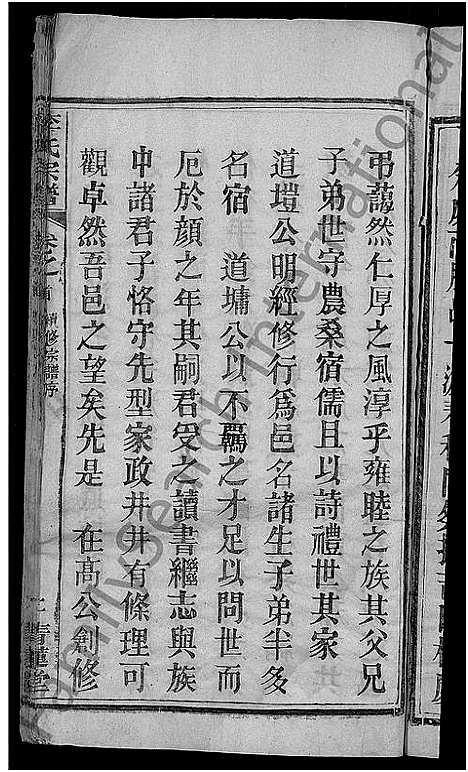 弔藹然仁厚之風淳乎雍睦之族其父兄
子弟世守農桑宿儒且以詩禮世其家
道塏公明經修行爲邑名諸生子弟半多
名宿 道墉公以不羈之才足以問世而
厄於顔之年其嗣君受之讀書繼志與族
中諸君子恪守先型家政井井有條理可
觀卓然吾邑之望矣先是 在髙公創修
李氏宗譜 卷之首 續修宗譜序 青蓮堂
FamilySearch International